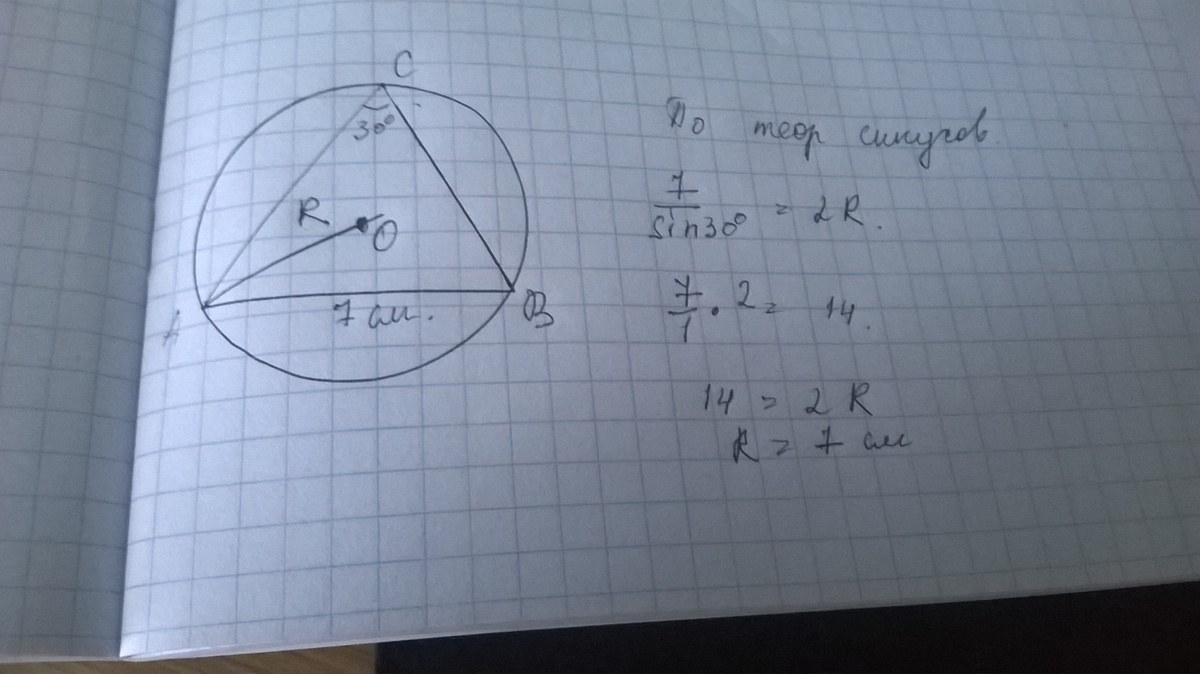 C
30°
R
O
A
7 см.
B
По теор синусов.
7/sin30° = 2R.
7/1 · 2 = 14.
14 = 2R
R = 7 см